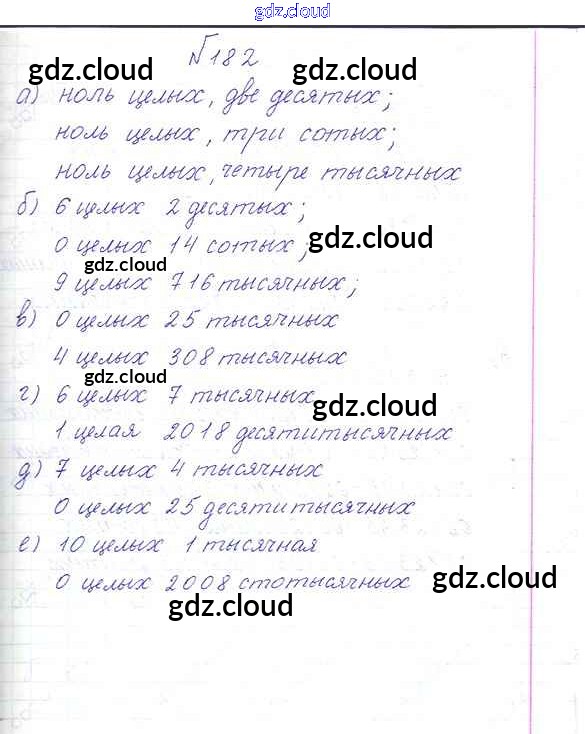 gdz.cloud
№182
gdz.cloud gdz.cloud
а) ноль целых, две десятых;
ноль целых, три сотых;
ноль целых, четыре тысячных
б) 6 целых 2 десятых;
0 целых 14 сотых; gdz.cloud
gdz.cloud
9 целых 716 тысячных;
в) 0 целых 25 тысячных
4 целых 308 тысячных
gdz.cloud
г) 6 целых 7 тысячных
gdz.cloud
1 целая 2018 десятитысячных
д) 7 целых 4 тысячных
0 целых 25 десятитысячных
е) 10 целых 1 тысячная
0 целых 2008 стотысячных gdz.cloud
gdz.cloud